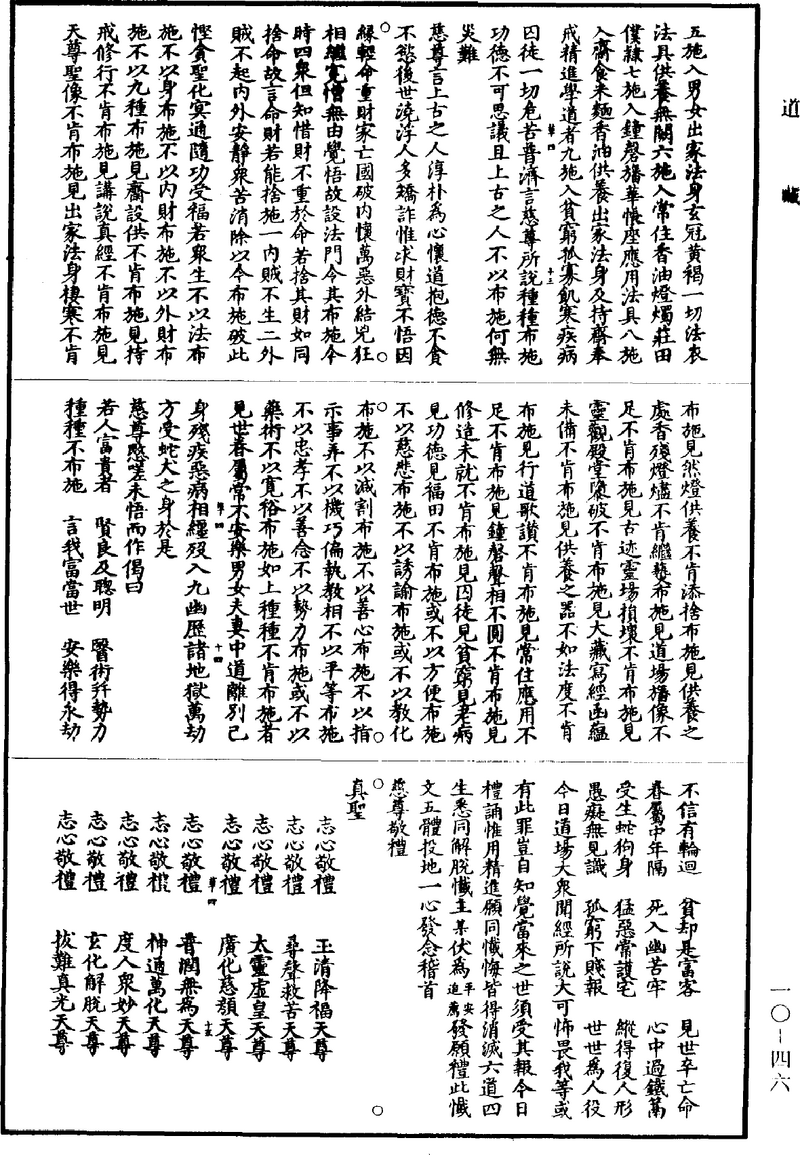 道藏
五施入男女出家法身玄冠黃褐一切法衣
法具供養無闕六施入常住香油燈燭莊田
僕隸七施入鐘磬旛華帳座應用法具八施
入齋食米麵香油供養出家法身及持齋奉
戒精進學道者九施入貧窮孤寡飢寒疾病
囚徒一切危苦普濟言慈尊所說種種布施
功德不可思議且上古之人不以布施何無
災難
慈尊言上古之人淳朴為心懷道抱德不貪
不慾後世澆浮人多矯詐惟求財寶不悟因
緣輕命重財家亡國破內懷萬惡外結兇狂
相繼寃憎無由覺悟故設法門令其布施今
時四衆但知惜財不重於命若捨其財如同
捨命故言命財若能捨施一內賊不生二外
賊不起內外安靜衆苦消除以今布施破此
慳貪聖化冥通隨功受福若衆生不以法布
施不以身布施不以內財布施不以外財布
施不以九種布施見齋設供不肯布施見持
戒修行不肯布施見講說真經不肯布施見
天尊聖像不肯布施見出家法身棲寒不肯
布施見然燈供養不肯添捨布施見供養之
處香殘燈燼不肯繼爇布施見道場旛像不
足不肯布施見古迹靈場損壞不肯布施見
靈觀殿堂隳破不肯布施見大藏寫經函蘊
未備不肯布施見供養之器不如法度不肯
布施見行道歌讚不肯布施見常住應用不
足不肯布施見鐘磬聲相不圓不肯布施見
修造未就不肯布施見囚徒見貧窮見老病
見功德見福田不肯布施或不以方便布施
不以慈悲布施不以誘諭布施或不以教化
布施不以減割布施不以善心布施不以指
示事弄不以機巧偏執教相不以平等布施
不以忠孝不以善念不以勢力布施或不以
藥術不以寬裕布施如上種種不肯布施者
見世眷屬常不安樂男女夫妻中道離別己
身殘疾惡病相纏歿入九幽歷諸地獄萬劫
方受蛇犬之身於是
慈尊愍嗟未悟而作偈曰
若人富貴者　賢良及聰明　醫術并勢力
種種不布施　言我富當世　安樂得永劫
不信有輪迴　貧却是富客　見世卒亡命
眷屬中年隔　死入幽苦牢　心中過鐵萬
受生蛇狗身　猛惡常護宅　縱得復人形
愚癡無見識　孤窮下賤報　世世為人役
今日道場大衆聞經所說大可怖畏我等或
有此罪豈自知覺當來之世須受其報今日
禮誦惟用精進願同懺悔皆得消滅六道四
生悉同解脫懺主某伏為平安追薦發願禮此懺
文五體投地一心發念稽首
慈尊敬禮
真聖
志心敬禮　玉清降福天尊
志心敬禮　尋聲救苦天尊
志心敬禮　太靈虛皇天尊
志心敬禮　廣化慈頟天尊
志心敬禮　普潤無為天尊
志心敬禮　神通萬化天尊
志心敬禮　度人衆妙天尊
志心敬禮　玄化解脫天尊
志心敬禮　拔難真光天尊
一〇－四六